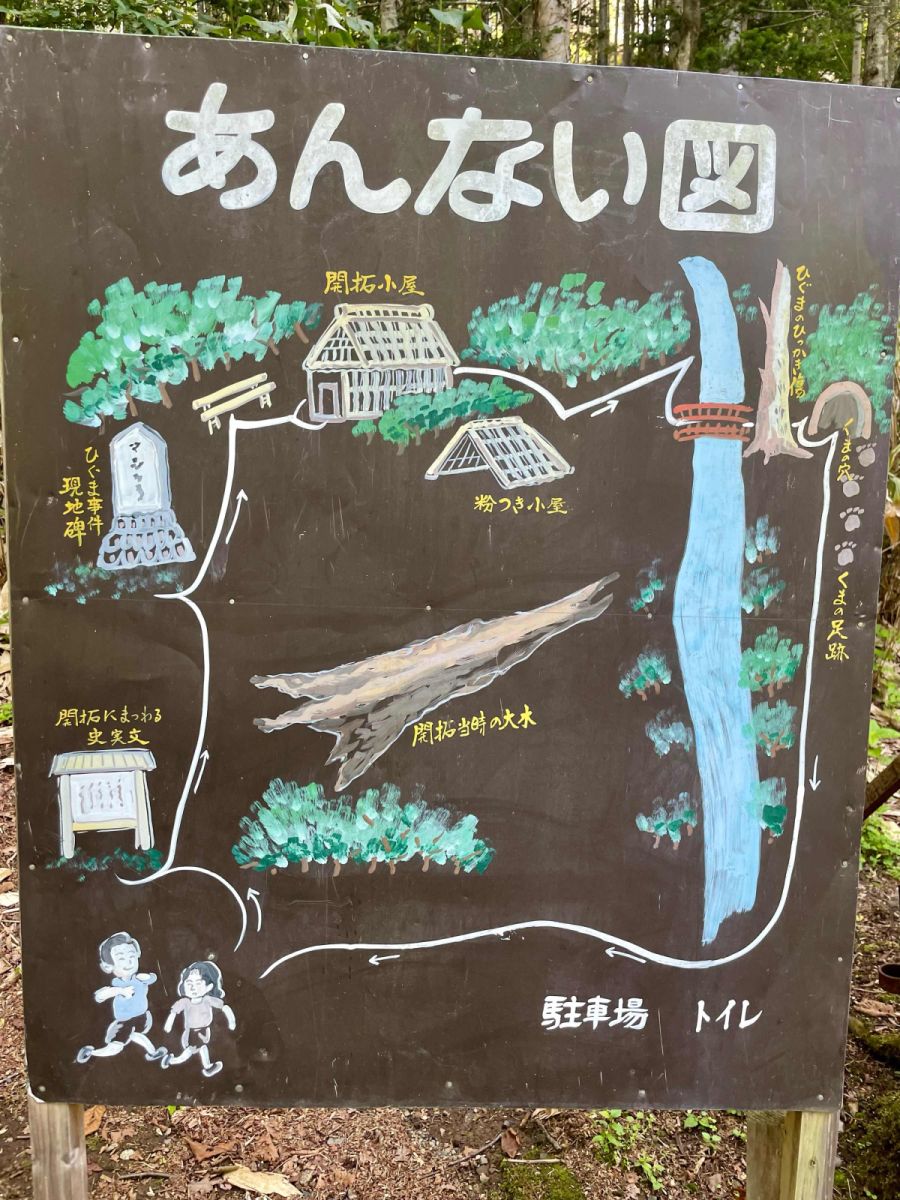 あんない図
開拓小屋
ひぐまのひっかき傷
くまの穴
ひぐま事件
現地碑
粉つき小屋
くまの足跡
開拓当時の大木
開拓にまつわる
史実文
駐車場 トイレ